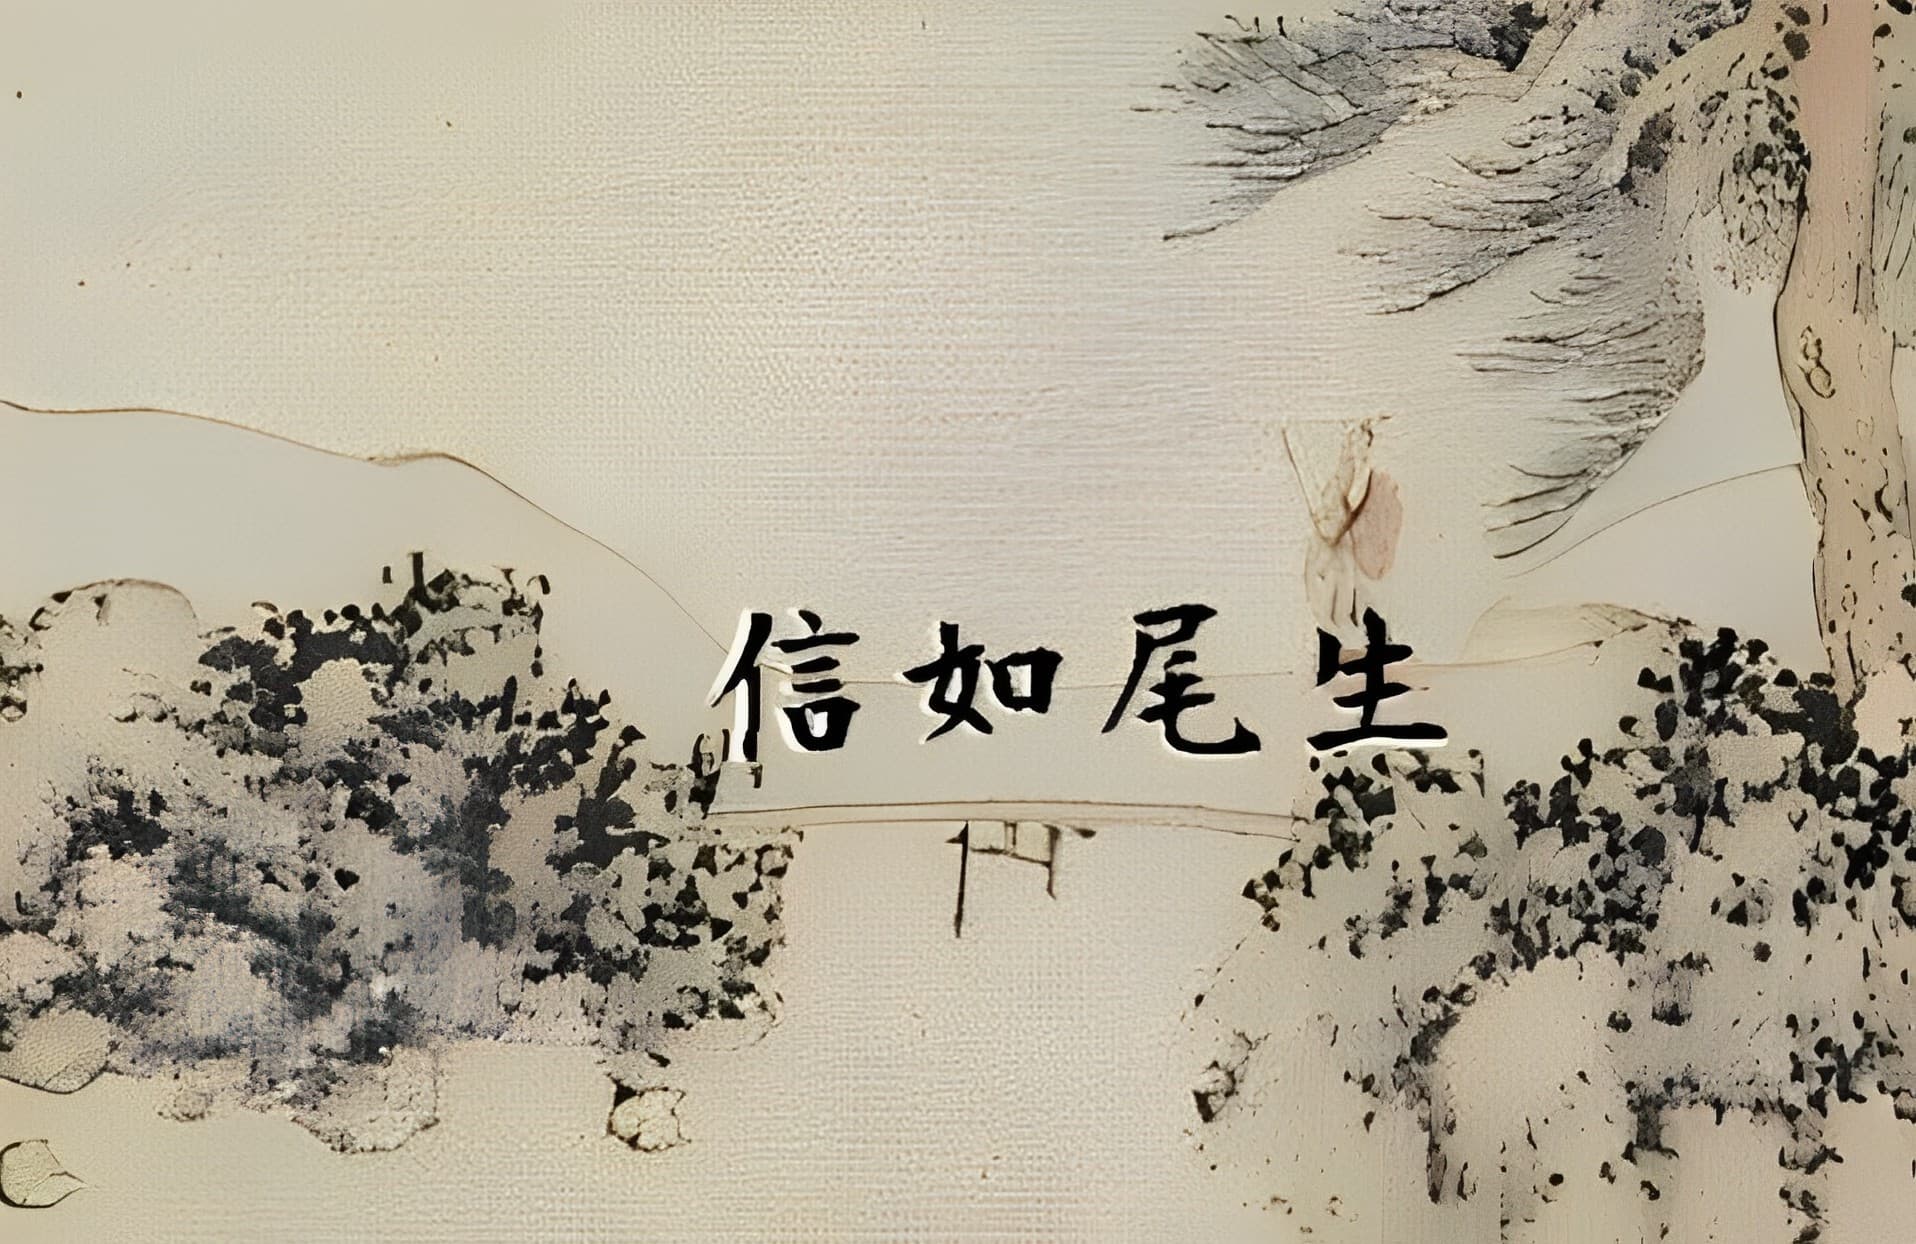 信如尾生